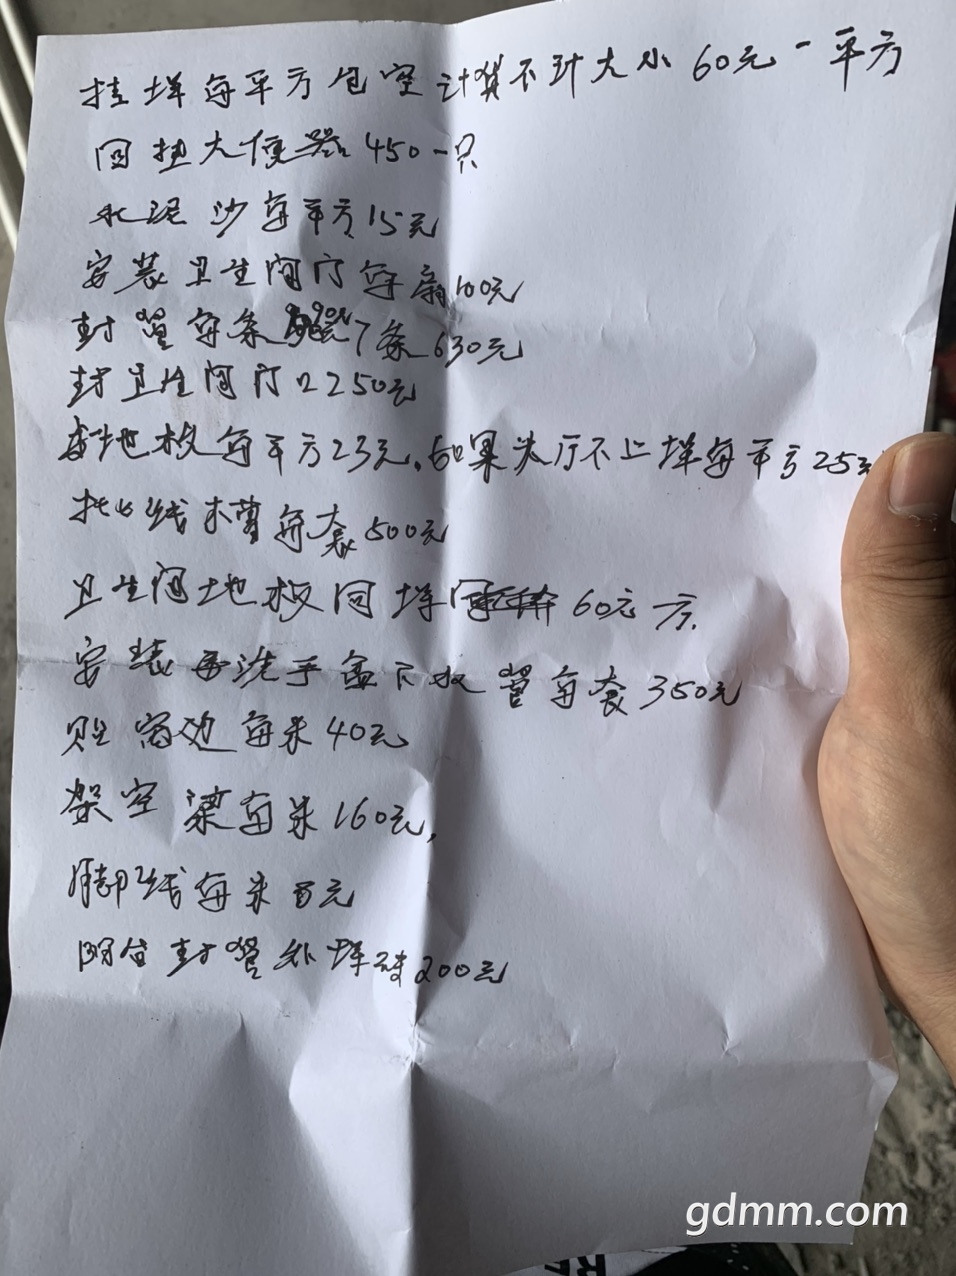 挂垟每平方包空计算不计大小60元一平方
回垫大便器450一只
水泥沙每平方15元
安装卫生间门每扇100元
封管每条90元7条630元
封卫生间门口250元
地板每平方23元.如果头厅不上垟每平方25元
批线木曹每套500元
卫生间地板回垟60元一方.
安装洗手盆下水管每套350元
贴窗边每米40元
架空梁每米160元,
脚线每米8元
阳台封管外垟200元
gdmm.com